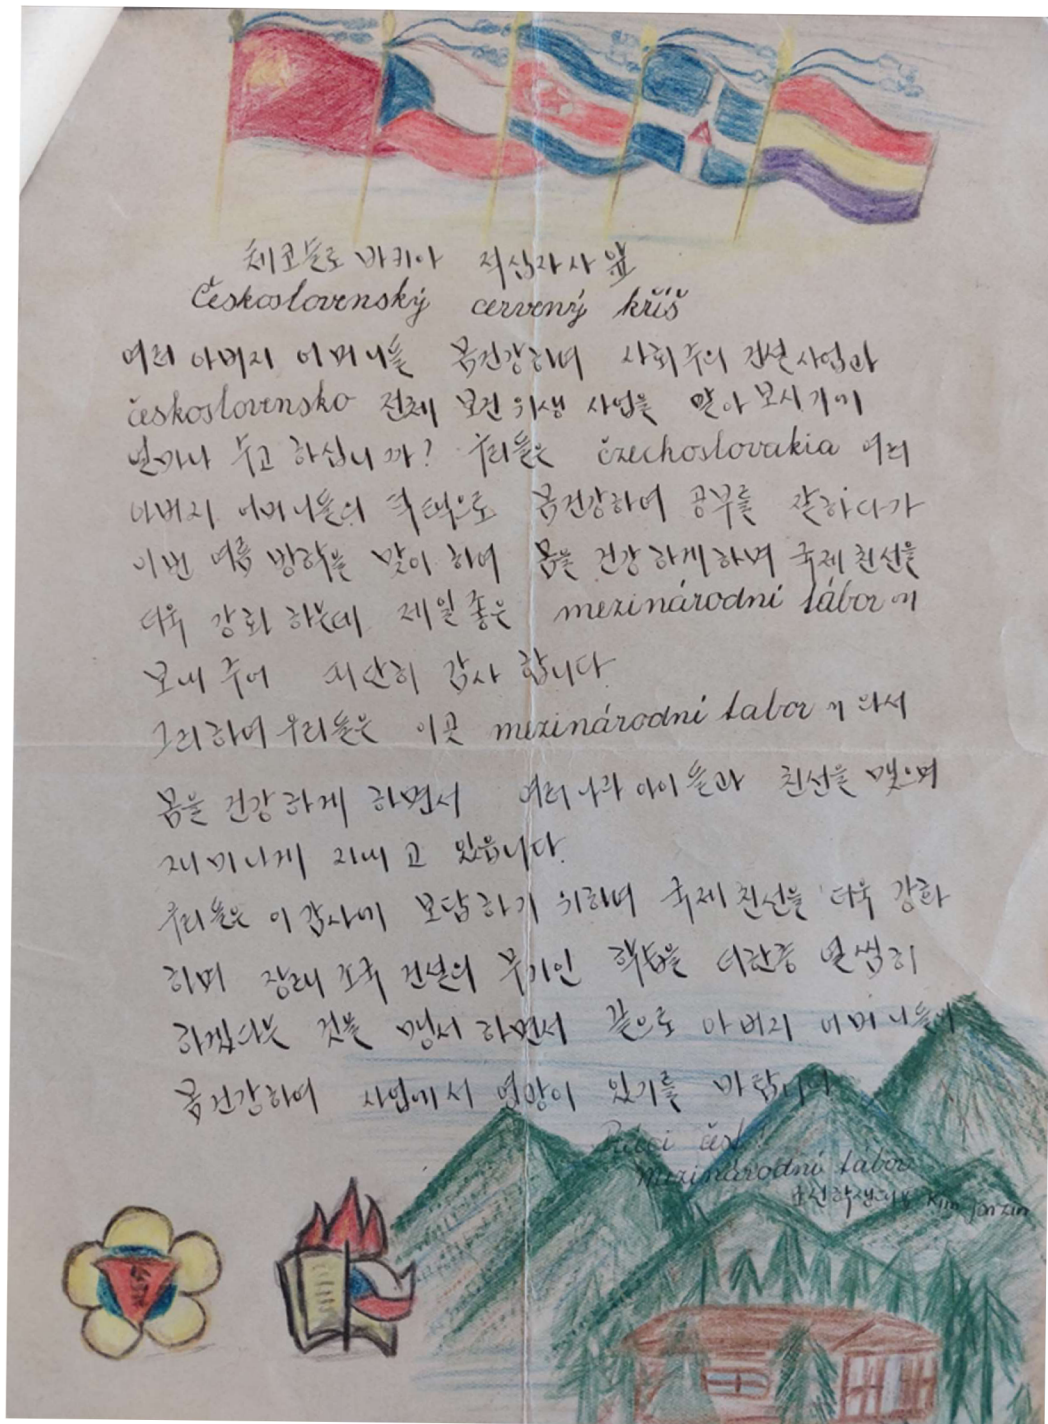 체코슬로바키아 적십자사 앞
Československý cervený kříš
여러 아버지 어머니들 몸건강하며 사회주의 건설사업과
československo 전체 보건 위생 사업을 맡아 보시기에
얼마나 수고 하십니까? 우리들은 čzechoslovakia 여러
아버지 어머니들의 덕택으로 몸건강하여 공부를 잘하다가
이번 여름 방학을 맞이 하여 몸을 건강하게하며 국제친선을
더욱 강화 하는데 제일좋은 mezinárodní tábor에
보내 주어 대단히 감사 합니다.
그리하여 우리들은 이곳 mezinárodní tabor에 와서
몸을 건강하게 하면서 여러나라 아이들과 친선을 맺으며
재미나게 지내고 있읍니다.
우리들은 이 감사에 보답하기 위하여 국제친선을 더욱 강화
하며 장래 조국 건설의 무기인 학습을 더한층 열심히
하겠다는 것을 맹서 하면서 끝으로 아버지 어머니들이
몸건강하여 사업에서 영광이 있기를 바랍니다
čest
mezinárodní tabor
조선학생대표 Kim jon zin